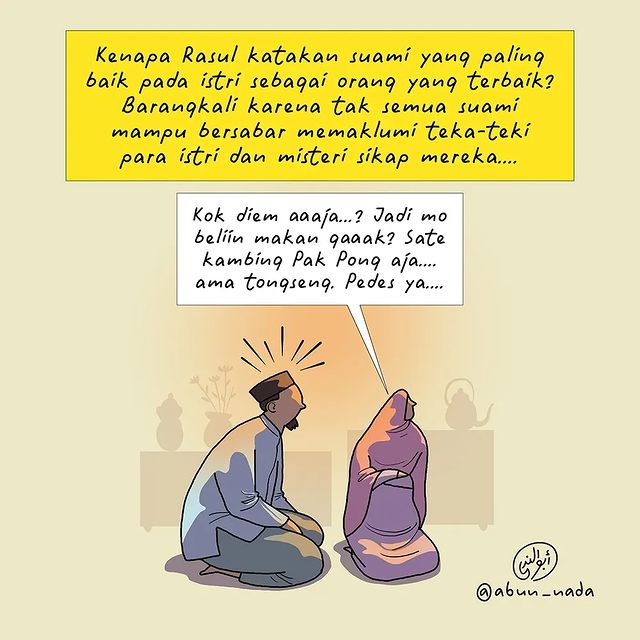 Kenapa Rasul katakan suami yang paling
baik pada istri sebagai orang yang terbaik?
Barangkali karena tak semua suami
mampu bersabar memaklumi teka-teki
para istri dan misteri sikap mereka....
Kok diem aaaja...? Jadi mo
beliin makan gaaak? Sate
kambing Pak Pong aja....
ama tongseng. Pedes ya....
@abun_nada